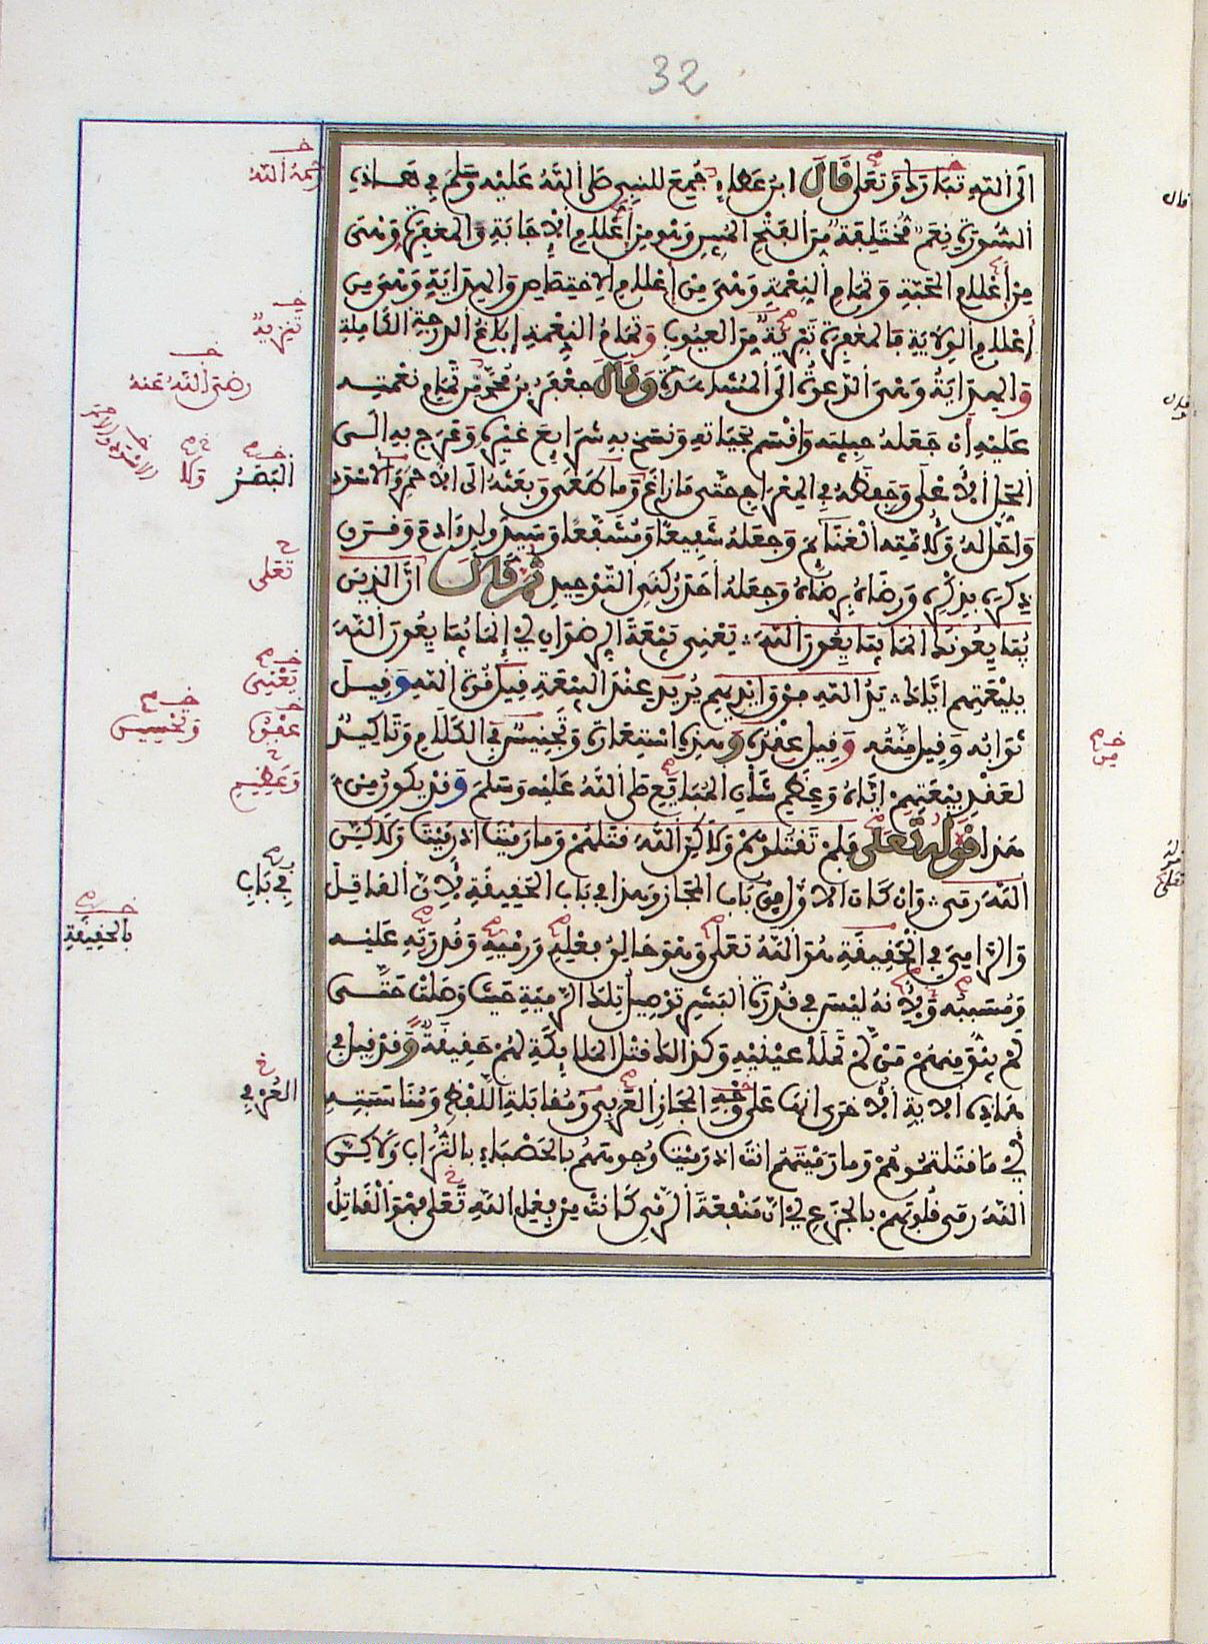 32
الى الله تبارك وتعلى قال ابن عطاء جمع للنبي صلى الله عليه وسلم في هاذه
السورة نعم مختلفة من الفتح المبين وهو من اعلام الاجابة والمغفرة وهي
من اعلام المحبة وتمام النعمة وهي من اعلام الاختصاص والهداية وهي من
اعلام الولاية فالمغفرة تبرية من العيوب وتمام النعمة ابلاغ الدرجة الكاملة
والهداية وهي الدعوة الى المشاهدة وقال جعفر بن محمد من تمام نعمته
عليه ان جعله حبيبه واقسم بحياته ونسخ به شرايع غيره وعرج به الى
المحل الاعلى وحفظه في المعراج حتى ما زاغ وما طغى وبعثه الى الاحمر والاسود
واحل له ولامته الغنايم وجعله شفيعا ومشفعا وسيد ولد ءادم وقرن
ذكره بذكره ورضاه برضاه وجعله احد ركني التوحيد ثم قال ان الذين
يبايعونك انما يبايعون الله يعني بيعة الرضوان اي انما يبايعون الله
ببيعتهم اياك يد الله فوق ايديهم يريد عند البيعة قيل قوة الله وقيل
ثوابه وقيل منته وقيل عقده وهذه استعارة وتجنيس في الكلام وتاكيد
لعقد بيعتهم اياه وعظيم شان المبايع صلى الله عليه وسلم وقد يكون من
هذا قوله تعلى فلم تقتلوهم ولاكن الله قتلهم وما رميت اذ رميت ولاكن
الله رمى وان كان الاول من باب المجاز وهذا في باب الحقيقة لان القاتل
والرامي في الحقيقة هو الله تعلى وهو خالق فعله ورميه وقدرته عليه
ومسببه ولانه ليس في قدرة البشر توصيل تلك الرمية حيث وصلت حتى
لم يبق منهم من لم تملا عينيه وكذلك قتل الملايكة لهم حقيقة وقد قيل في
هاذه الاية الاخرى انها على وجه المجاز العربي ومقابلة اللفظ ومناسبته
اي ما قتلتموهم وما رميتهم انت اذ رميت وجوههم بالحصباء بالتراب ولاكن
الله رمى قلوبهم بالجزع اي ان منفعة الرمي كانت من فعل الله تعلى فهو القاتل
رحمه الله
تنزيه
رضي الله عنه
البصر
تعلى
يعني
عقده
وتحسيس
وعظيم
في باب
بالحقيقة
العرفي
من
قال